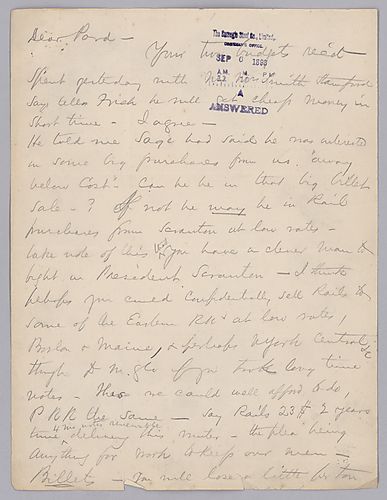 Dear Pard –
The Carnegie Steel Co., Limited.
SEP
ANSWERED
Your two budgets rec'd
Spent yesterday with
says tells Frick he will get cheap money in
short time – I agree –
He told me Sage had said he was interested
in some big purchases from us, "away
below Cost" – Can he be in that big billet
sale – ? If not he may be in Rail
purchases from Scranton at low rates –
take note of this & you have a clever man to
fight in President Scranton – I think
perhaps you could confidentially sell Rails to
some of the Eastern RRs at low rates,
Boston & Maine, & perhaps N York Central &c
though D M & Co if you took long time
notes – This we could well afford to do,
P RR the same – say Rails 23$ 2 years
time delivery this winter – the plea being
anything for work to keep our men –
Billets – You will lose a little per ton